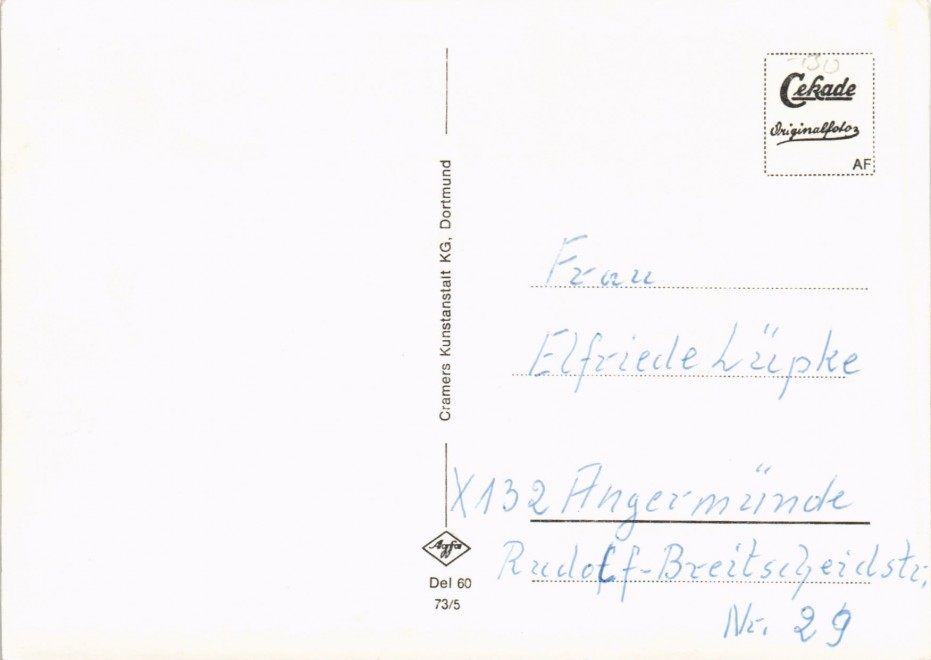 -130
Cekade
Originalfoto
AF
Cramers Kunstanstalt KG, Dortmund
Frau
Elfriede Lüpke
X132 Angermünde
Rudolf-Breitscheidstr.
Nr. 29
Agfa
Del 60
73/5